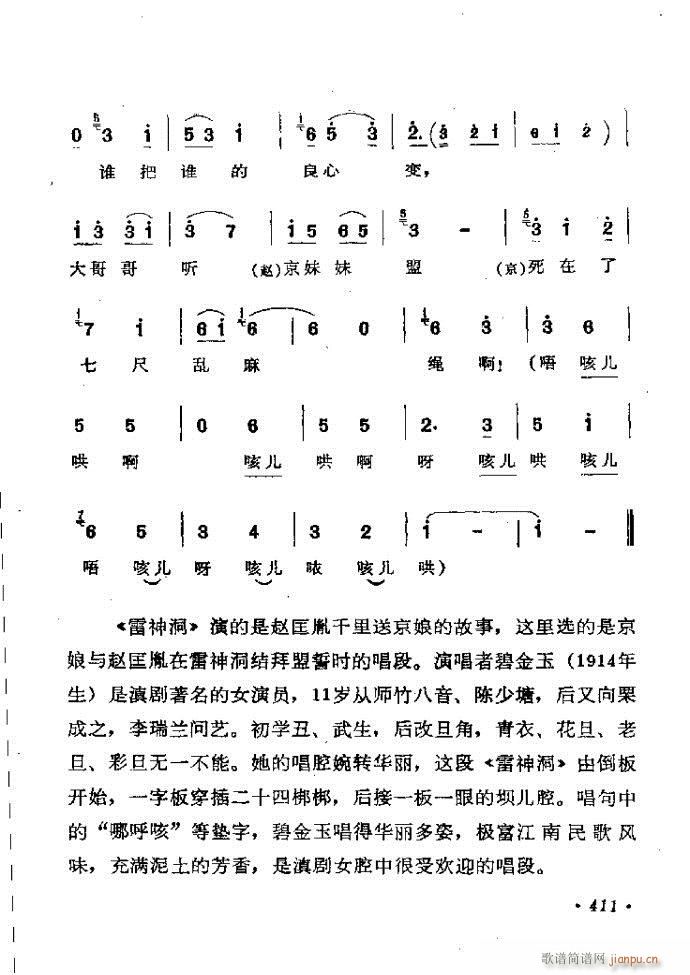 5 1
0 3 i | 5 3 i | 6 5 3 | 2. (3 2 1 | 6 i 2) |
谁 把 谁 的 良 心 变，
i 3 3 i | 3 7 | i 5 6 5 | 3 － | 3 i 2
大哥哥 听 (赵)京妹妹 盟 (京)死在了
7 i | 6 i 6 | 6 0 | 6 3 | 3 6
七 尺 乱 麻 绳 啊！(唔 咳儿
5 5 | 0 6 | 5 5 | 2. 3 | 5 i
哄 啊 咳儿 哄 啊 呀 咳儿 哄 咳儿
6 5 | 3 4 | 3 2 | i － | i － ‖
唔 咳儿 呀 咳儿 咴 咳儿 哄)
《雷神洞》演的是赵匡胤千里送京娘的故事，这里选的是京
娘与赵匡胤在雷神洞结拜盟誓时的唱段。演唱者碧金玉（1914年
生）是滇剧著名的女演员，11岁从师竹八音、陈少塘，后又向栗
成之，李瑞兰问艺。初学丑、武生，后改旦角，青衣、花旦、老
旦、彩旦无一不能。她的唱腔婉转华丽，这段《雷神洞》由倒板
开始，一字板穿插二十四梆梆，后接一板一眼的坝儿腔。唱句中
的“哪呼咳”等垫字，碧金玉唱得华丽多姿，极富江南民歌风
味，充满泥土的芳香，是滇剧女腔中很受欢迎的唱段。
·411·
歌谱简谱网 jianpu.cn